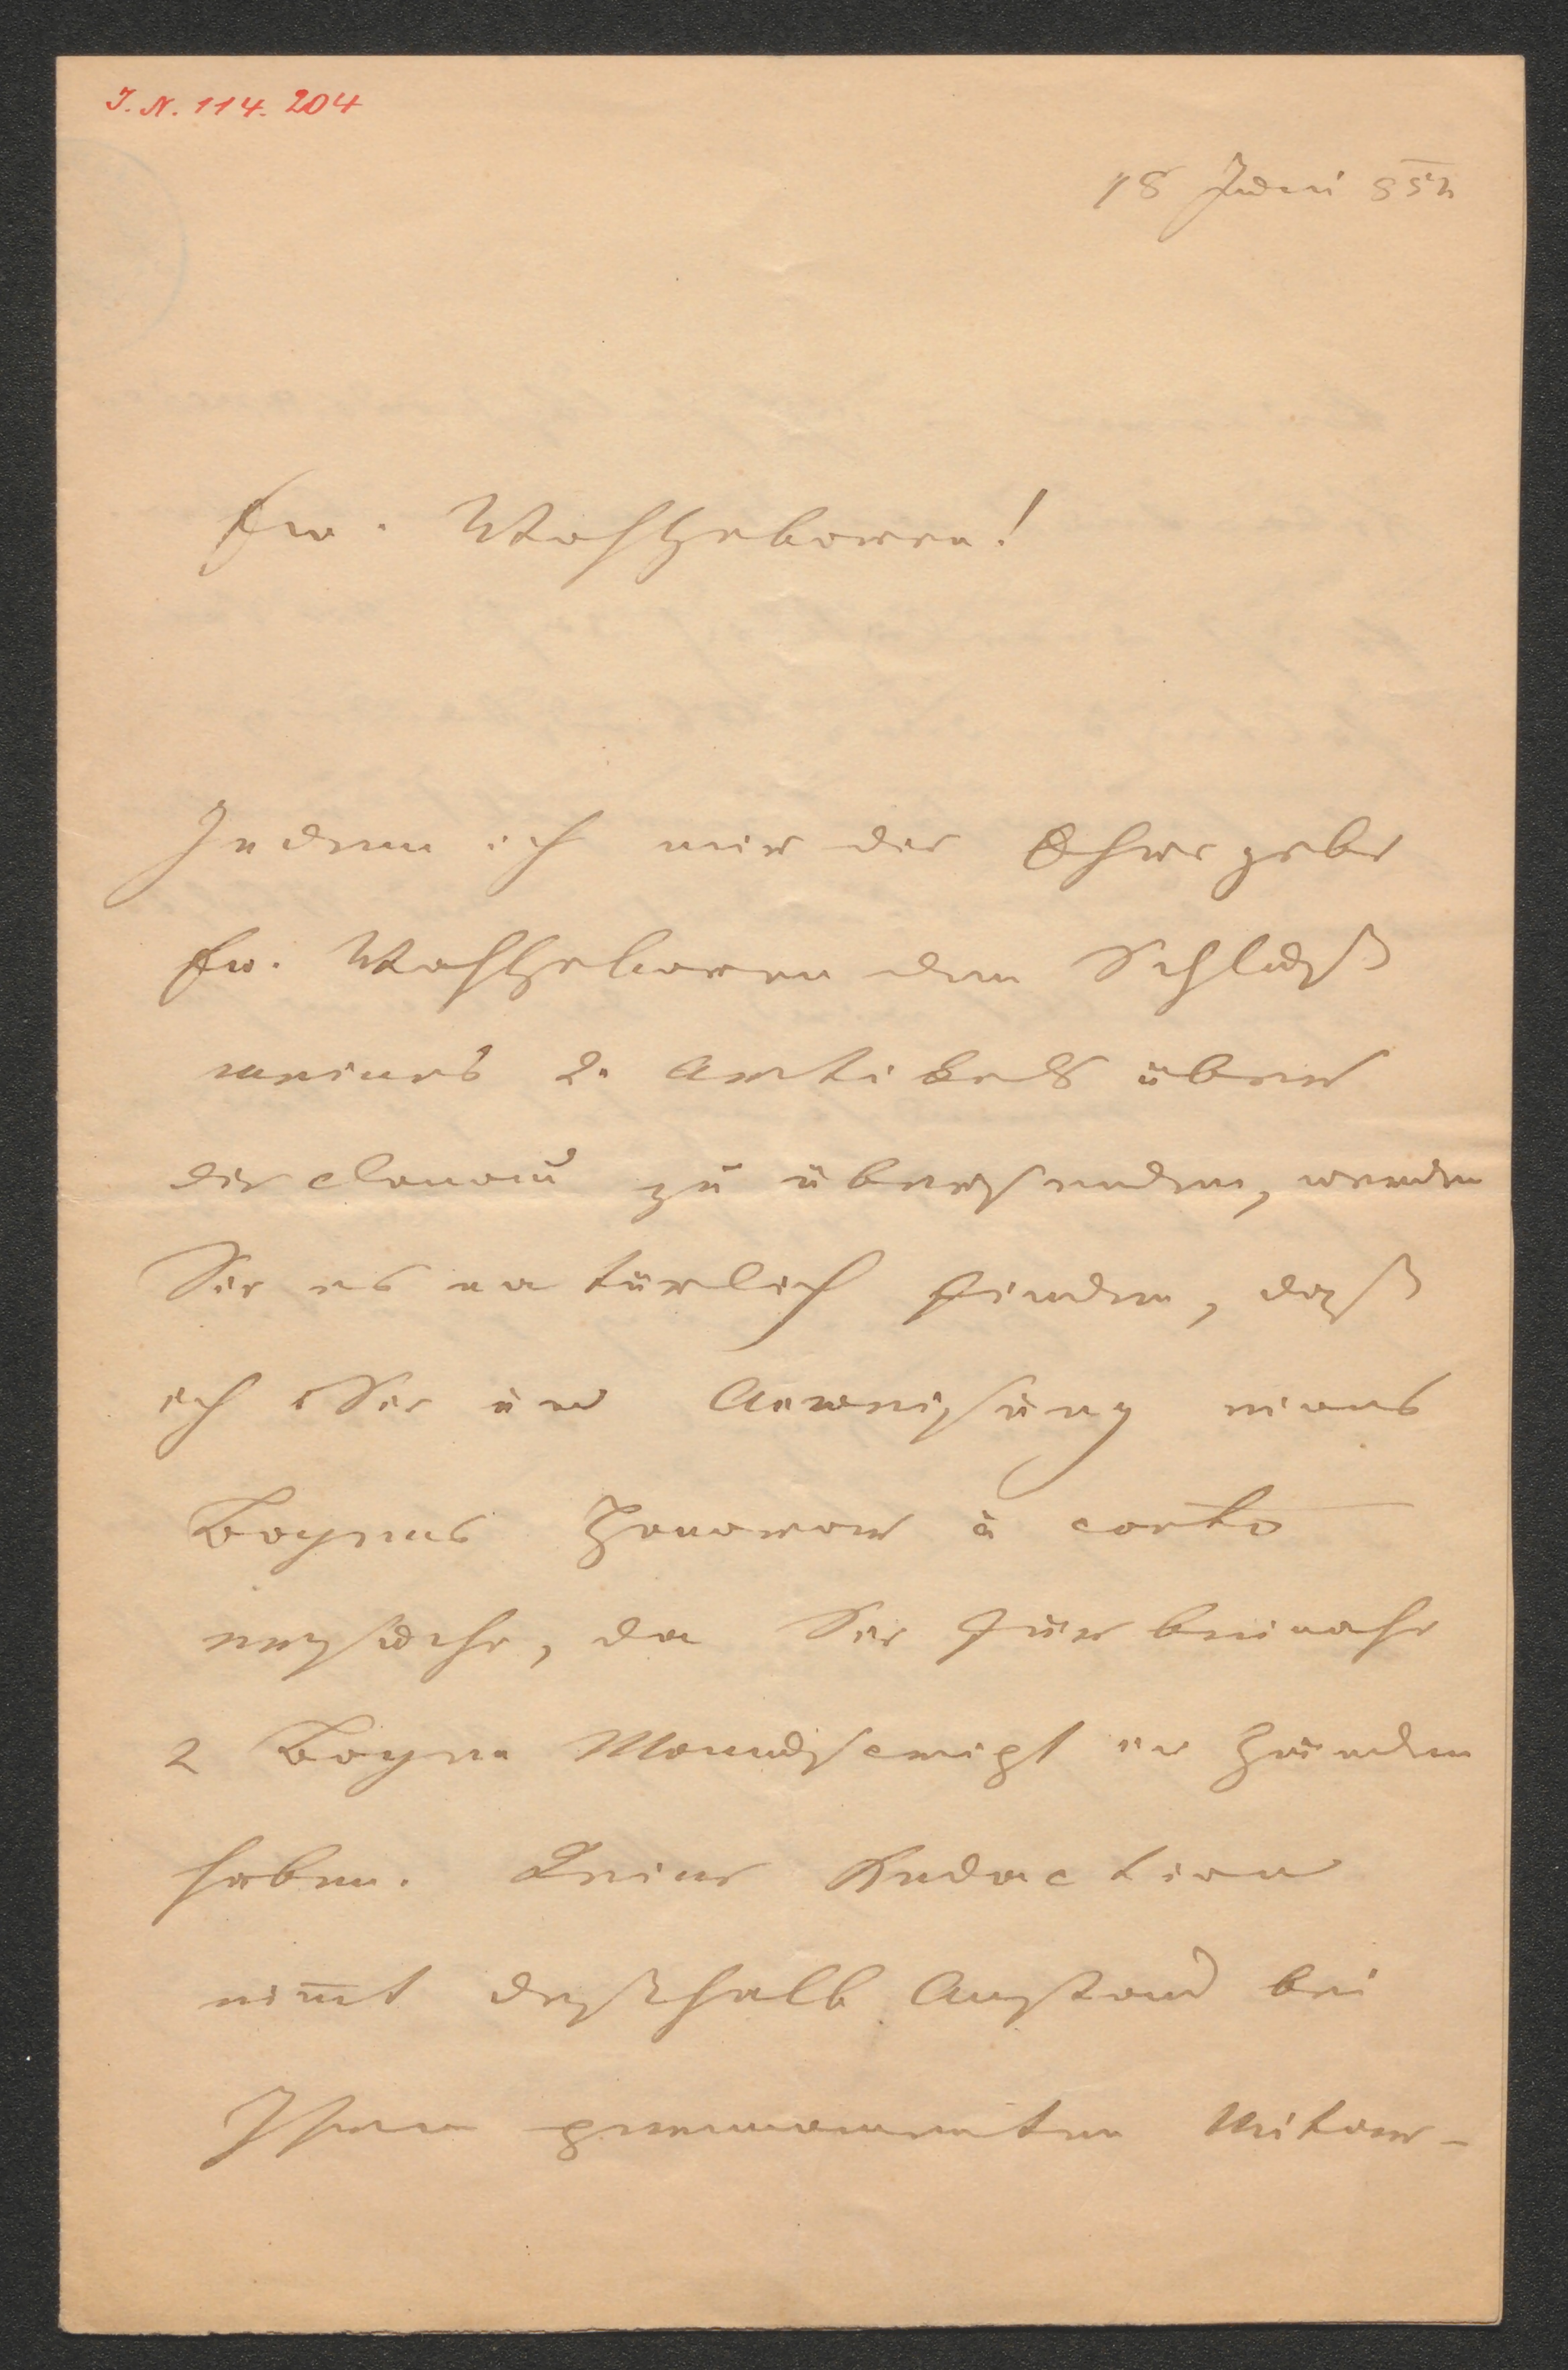 I. N. 114. 204
18 Juni 852
Ew. Wohlgeboren!
Indem ich mir die Ehre gebe
Ew. Wohlgeboren den Schluß
meines 2. Artikels über
die Donau zu übersenden, werden
Sie es natürlich finden, daß
ich Sie um Anweisung eines
Bogens Honorar à conto
ersuche, da Sie für beinahe
2 Bogen Manuscript in Händen
haben. Keine Redaction
nim̅t deßhalb Anstand bei
Ihren permanenten Mitar-